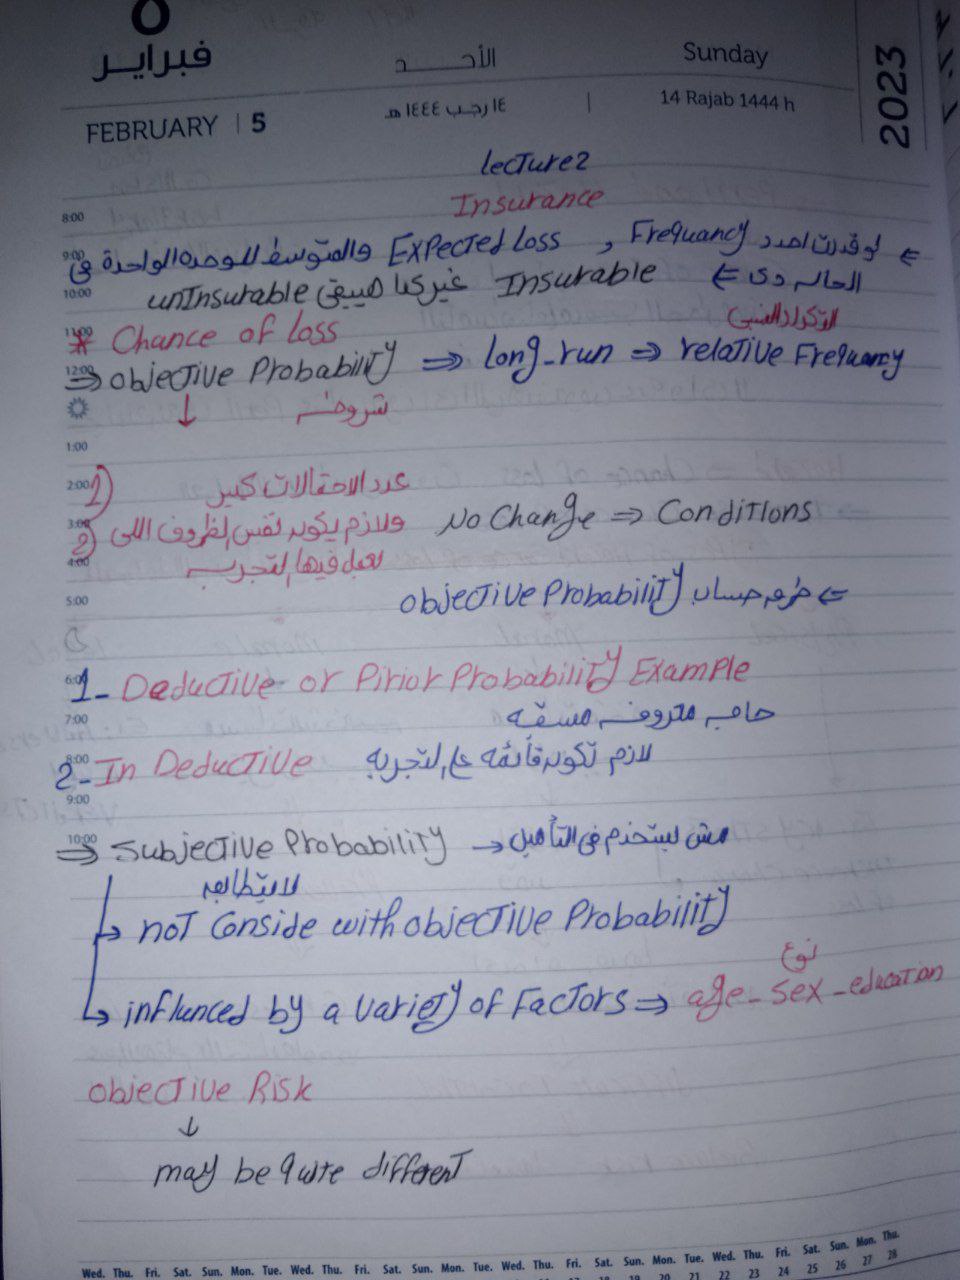 ٥
فبراير
الأحد
Sunday
2023
FEBRUARY | 5
١٤ رجب ١٤٤٤ هـ | 14 Rajab 1444 h
lecture2
8:00 Insurance
9:00 ⇐ لو قدرت احدد Frequancy , Expected Loss والمتوسط للوحده الواحدة فى
10:00 الحاله دى ⇐ Insurable غير كدا هيبقى unInsurable
التكرار النسبى
11:00 * Chance of Loss
12:00 ⇒ objective Probability ⇒ long-run ⇒ relative Frequancy
↓ شروطه
1:00
2:00 1) عدد الاحتمالات كبير
3:00 2) ولازم يكون نفس الظروف اللى No Change ⇒ Conditions
4:00 فيها التجربه
5:00 ⇐ طرق حساب objective Probability
6:00 1- Deductive or Pirior Probability Example
7:00 حاجه معروفه مسبقه
8:00 2- In Deductive لازم تكون قائمه على التجربه
9:00
10:00 ⇒ Subjective Probability → مش بيستخدم فى التأمين
لا يتطابق
→ not Conside with objective Probability
نوع
→ influnced by a variety of Factors ⇒ age - sex - education
objective Risk
↓
may be quite different
Wed. Thu. Fri. Sat. Sun. Mon. Tue. Wed. Thu. Fri. Sat. Sun. Mon. Tue. Wed. Thu. Fri. Sat. Sun. Mon. Tue. Wed. Thu. Fri. Sat. Sun. Mon. Thu.
18 19 20 21 22 23 24 25 26 27 28